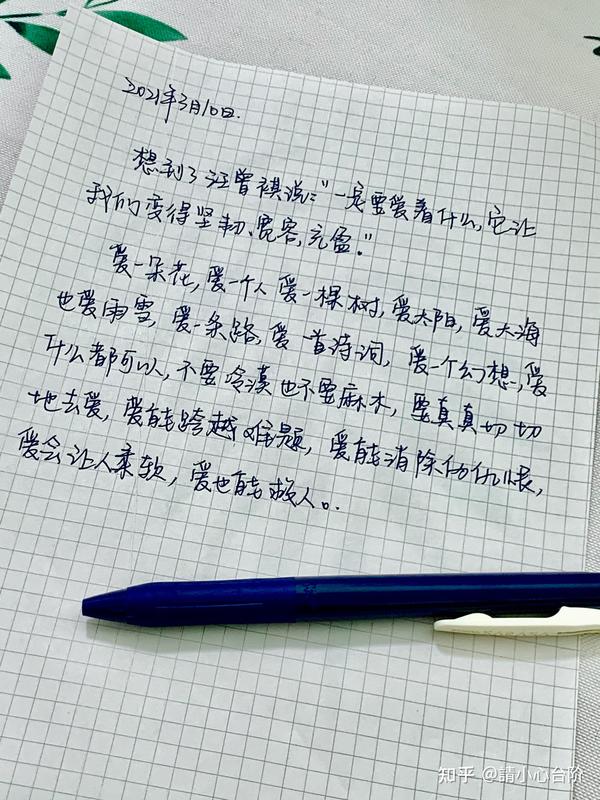 2021年3月10日.
想到了汪曾祺说:"一定要爱着什么,它让
我们变得坚韧、宽容,充盈."
爱一朵花,爱一个人 爱一棵树,爱太阳,爱大海
也爱雨雪,爱一条路,爱一首诗词,爱一个幻想,爱
什么都可以,不要冷漠也不要麻木,要真真切切
地去爱,爱能跨越难题,爱能消除仇恨,
爱会让人柔软,爱也能救人。.
知乎 @請小心台阶